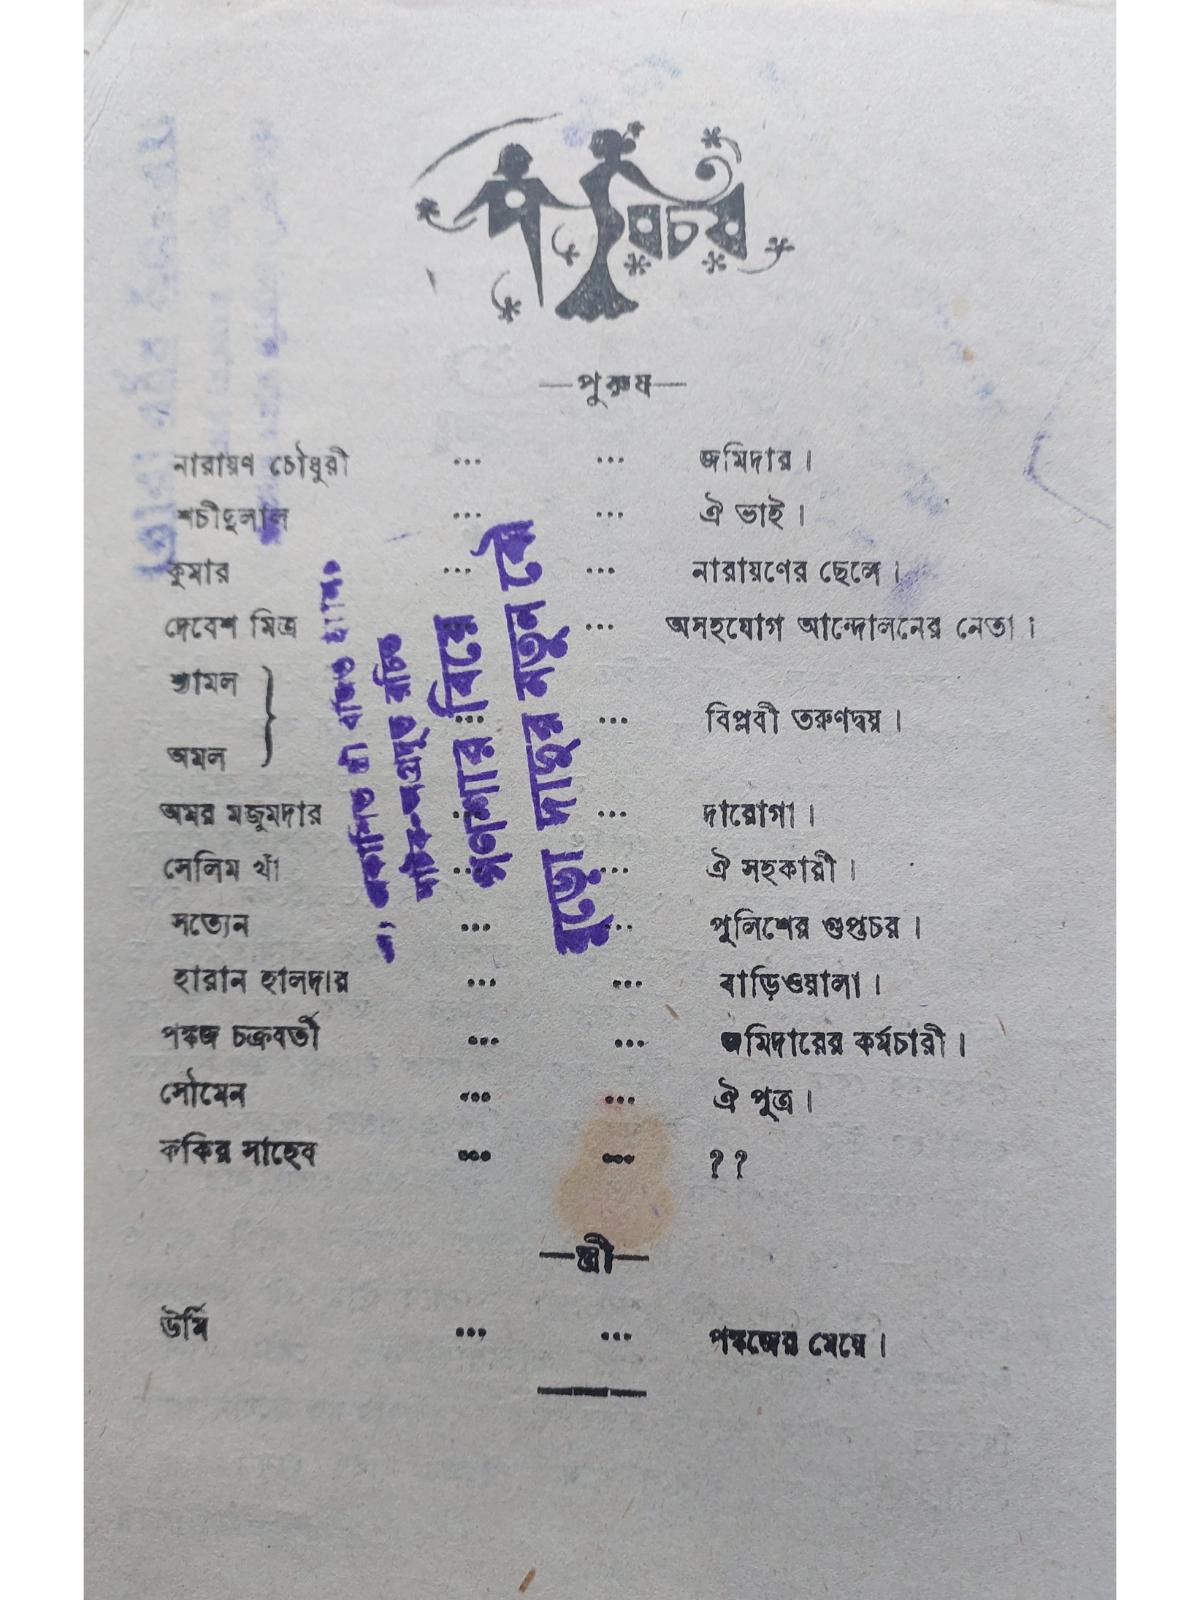 পরিচয়
—পুরুষ—
নারায়ণ চৌধুরী ... ... জমিদার।
শচীদুলাল ... ... ঐ ভাই।
কুমার ... ... নারায়ণের ছেলে।
দেবেশ মিত্র ... অসহযোগ আন্দোলনের নেতা।
শ্যামল
অমল } ... ... বিপ্লবী তরুণদ্বয়।
অমর মজুমদার ... ... দারোগা।
সেলিম খাঁ ... ... ঐ সহকারী।
সত্যেন ... ... পুলিশের গুপ্তচর।
হারান হালদার ... ... বাড়িওয়ালা।
পঙ্কজ চক্রবর্তী ... ... জমিদারের কর্মচারী।
সৌমেন ... ... ঐ পুত্র।
ফকির সাহেব ... ... ??
—স্ত্রী—
ঊর্মি ... ... পঙ্কজের মেয়ে।
বিয়ে
বুড়ো দাদুর নতুন বৌ